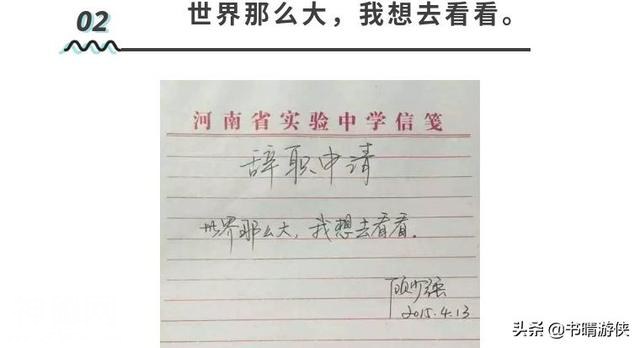 02
世界那么大，我想去看看。
河南省实验中学信笺
辞职申请
世界那么大，我想去看看。
顾少强
2015.4.13
头条 @书晴游侠